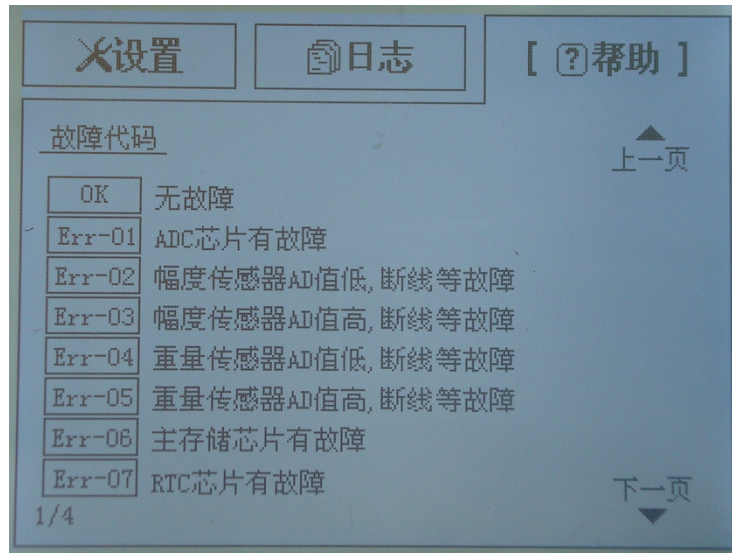 设置 日志 [ ?帮助 ]
故障代码
上一页
OK 无故障
Err-01 ADC芯片有故障
Err-02 幅度传感器AD值低,断线等故障
Err-03 幅度传感器AD值高,断线等故障
Err-04 重量传感器AD值低,断线等故障
Err-05 重量传感器AD值高,断线等故障
Err-06 主存储芯片有故障
Err-07 RTC芯片有故障
下一页
1/4